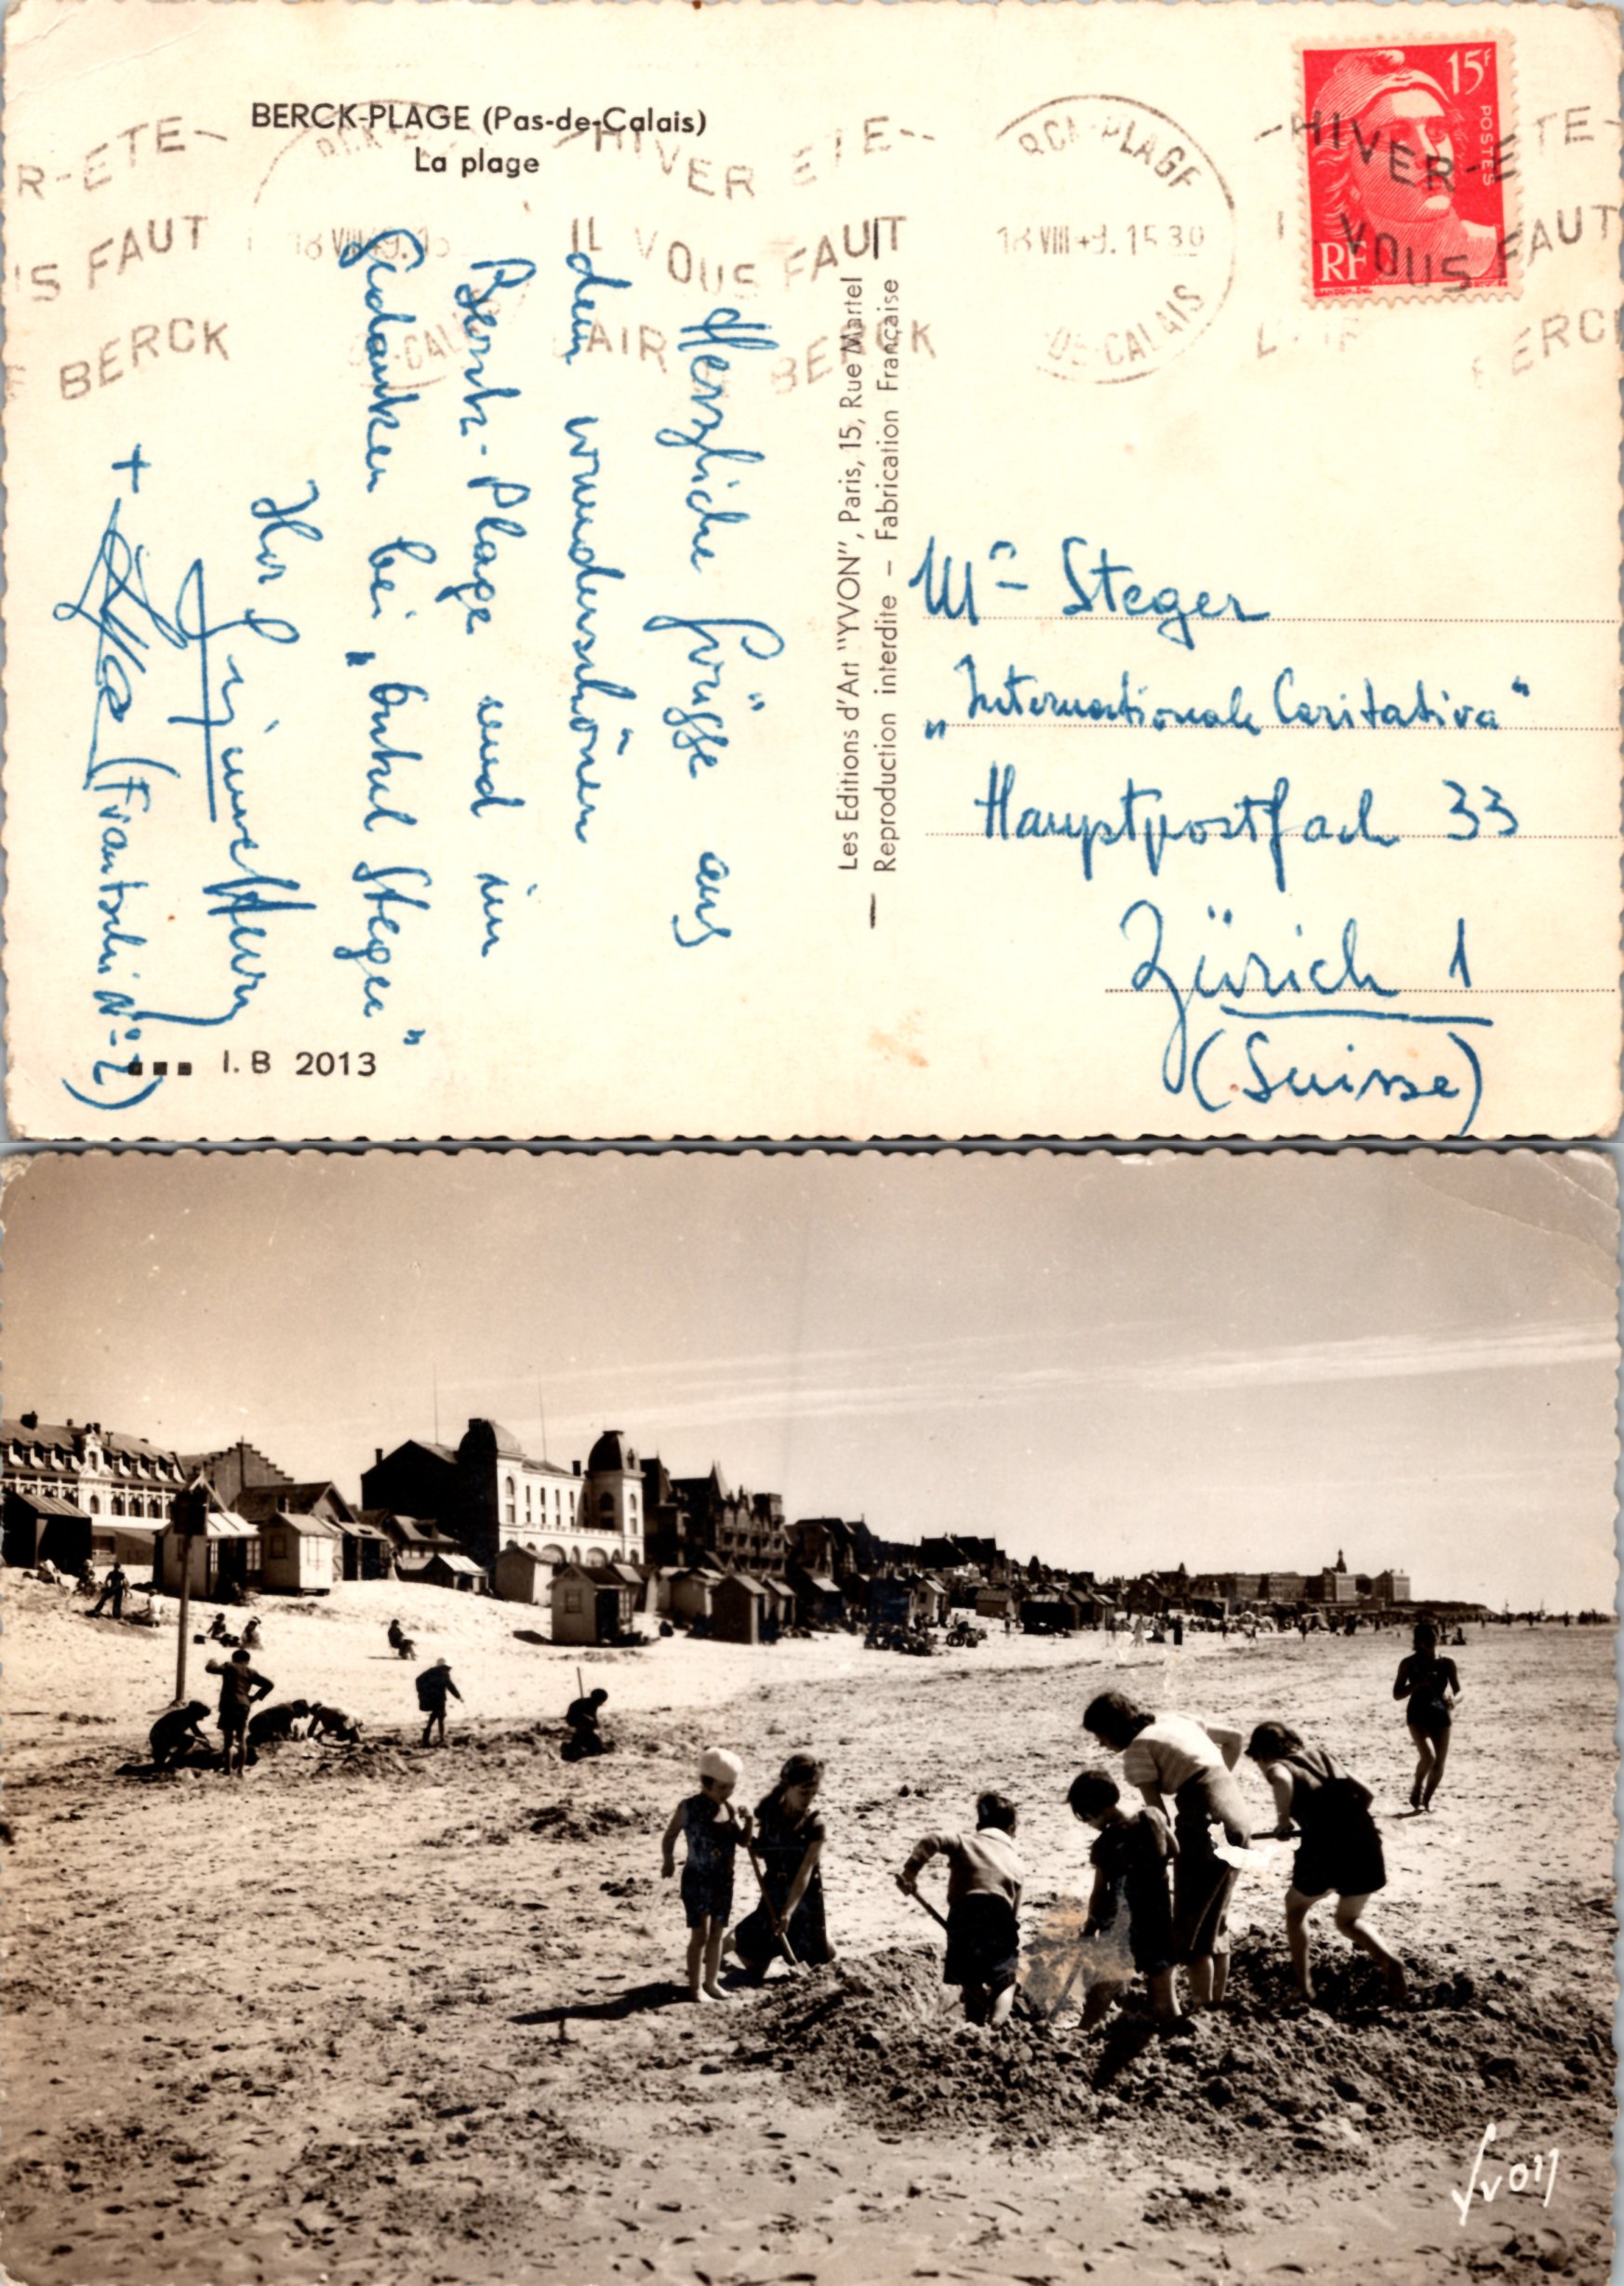 BERCK-PLAGE (Pas-de-Calais)
La plage
R-ETE
HIVER ETE
HIVER-ETE
'S FAUT
IL VOUS FAUT
VOUS FAUT
BERCK
AIR BERCK
BERC
RCK-PLAGE
18 VIII 9.15 30
DE-CALAIS
15F
POSTES
RF
Herzliche Grüsse aus
dem wunderschönen
Berck-Plage und im
Gedanken bei „Onkel Steger"
Ihr
+
(Frantschi
Les Editions d'Art "YVON", Paris, 15, Rue Martel
Reproduction interdite – Fabrication Française
Mr Steger
„Internationale Caritativa"
Hauptpostfach 33
Zürich 1
(Suisse)
I. B 2013
Yvon